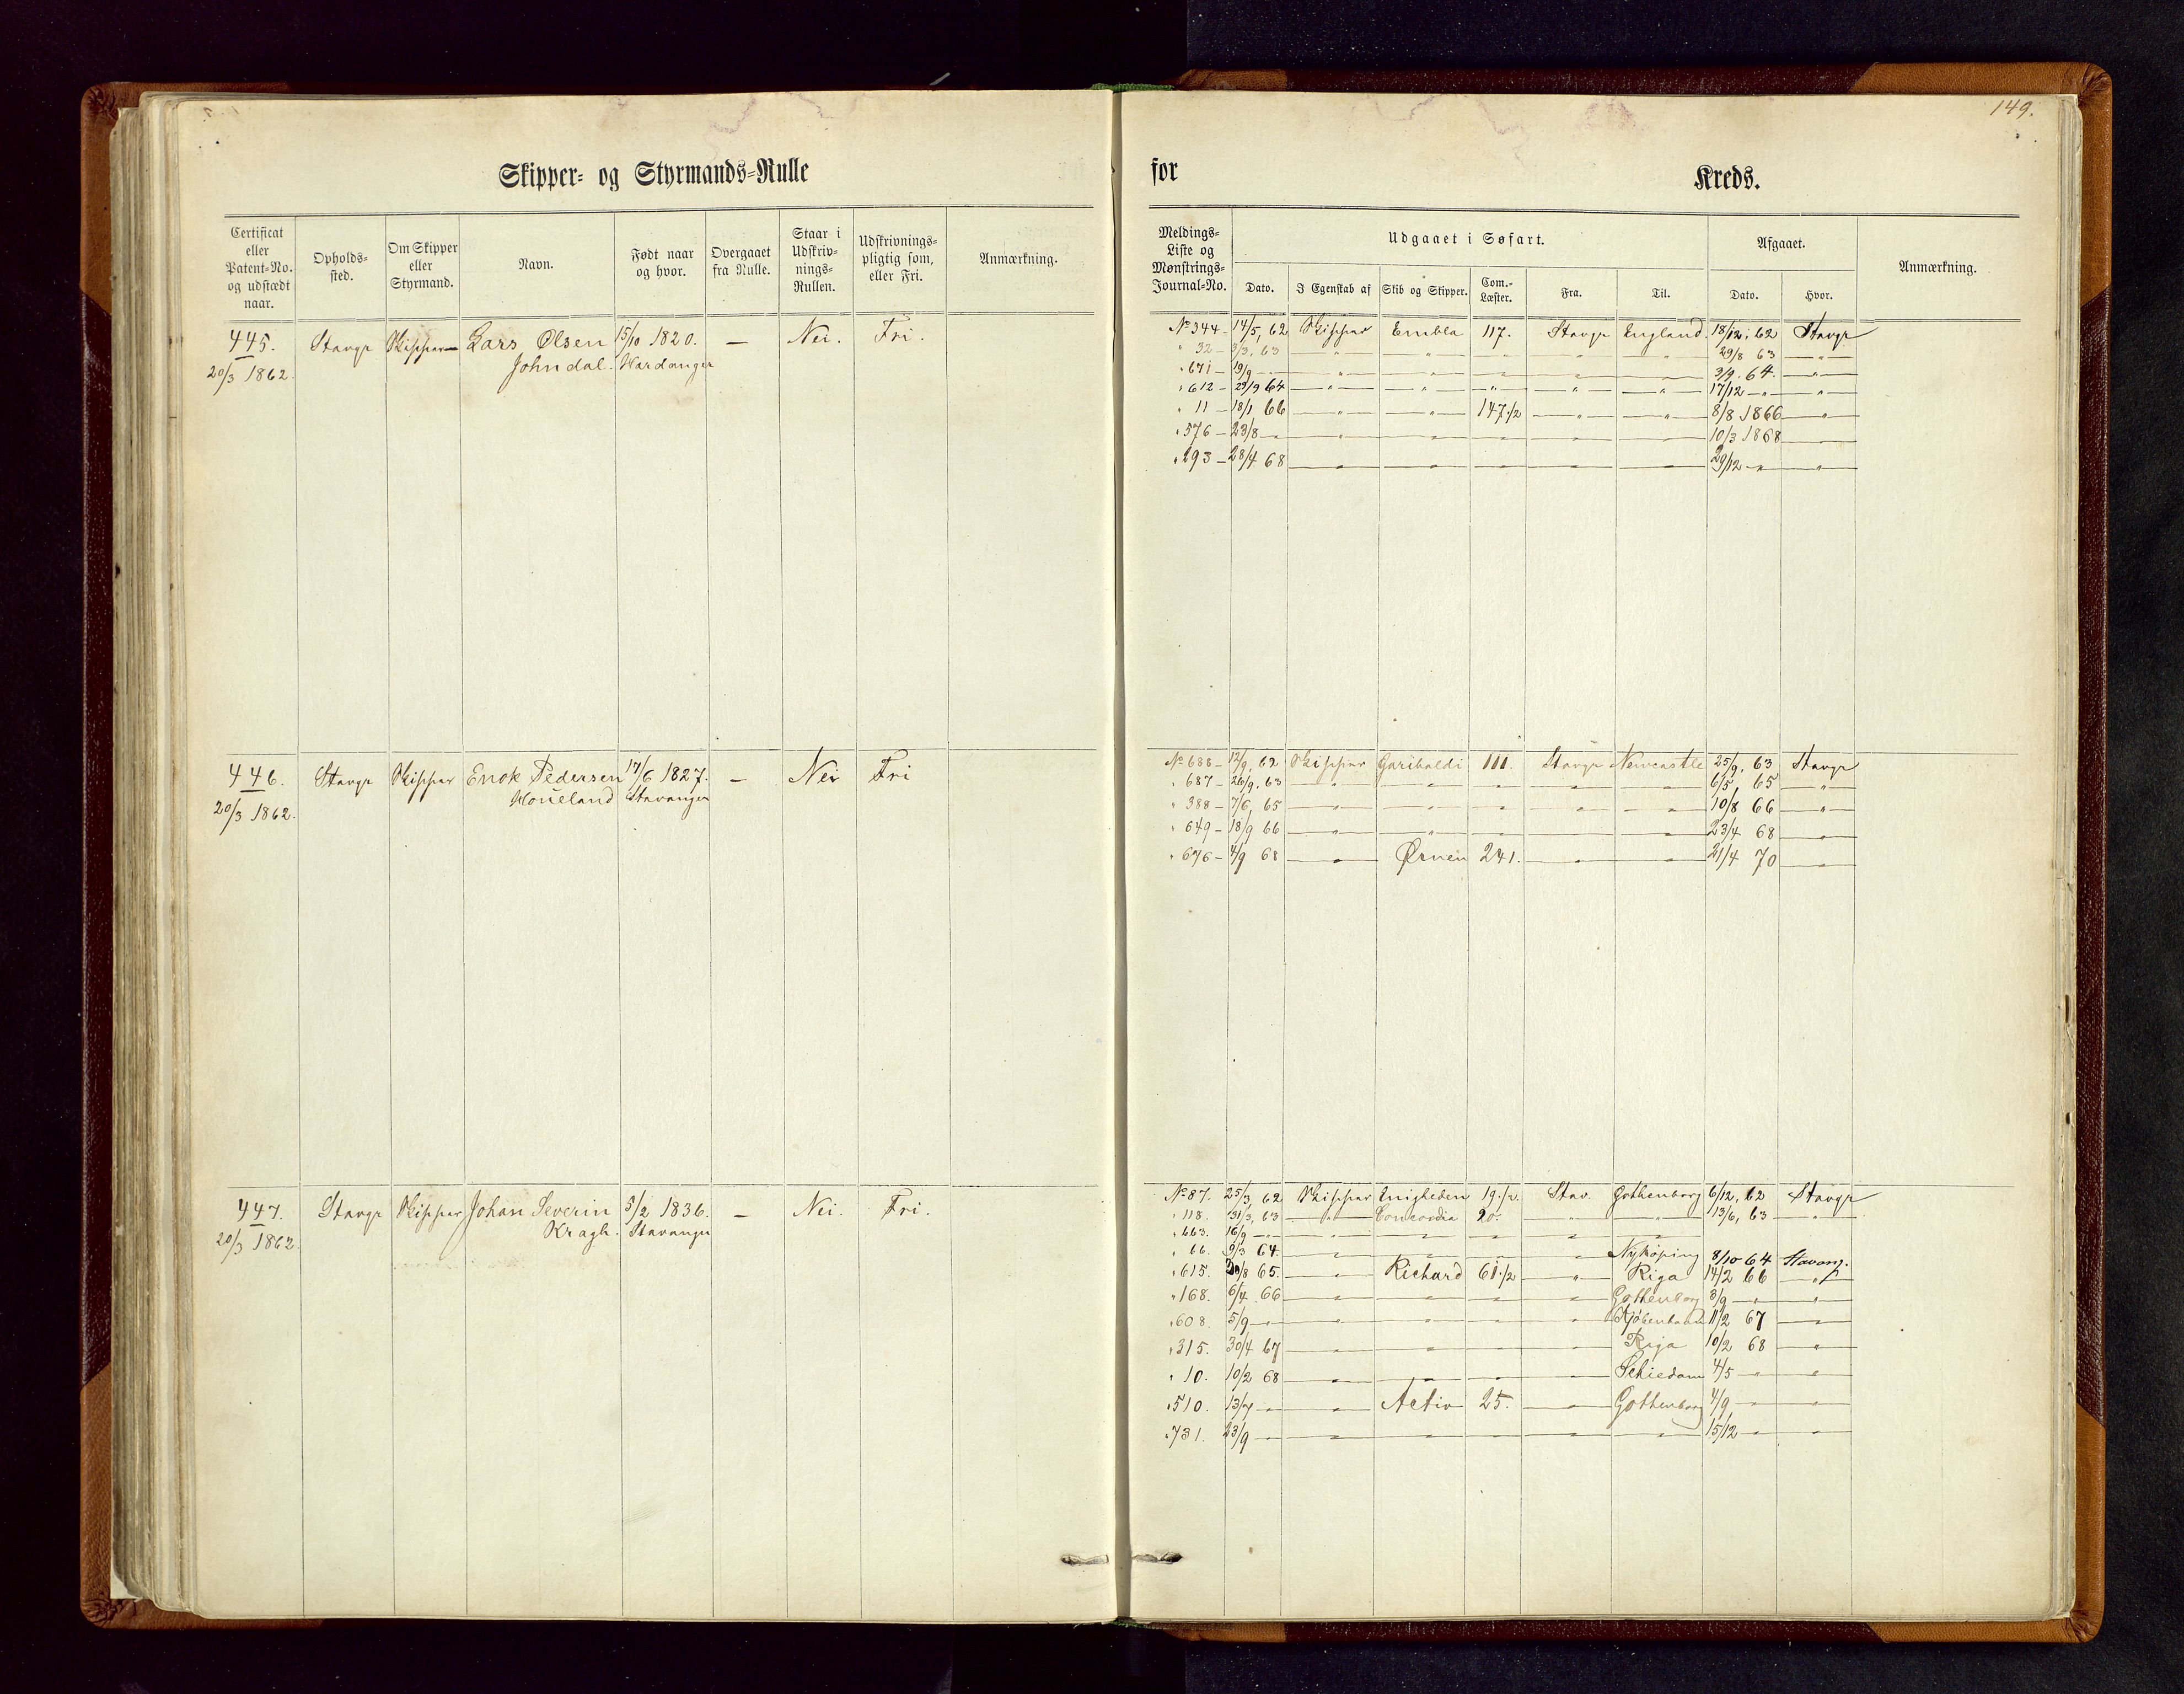 149.
Skipper- og Styrmands-Rulle
for Kreds.
Certificat eller Patent-No. og udstædt naar.
Opholds-sted.
Om Skipper eller Styrmand.
Navn.
Født naar og hvor.
Overgaaet fra Rulle.
Staar i Udskriv-nings-Rullen.
Udskrivnings-pligtig som, eller Fri.
Anmærkning.
Meldings-Liste og Mønstrings-Journal-No.
Udgaaet i Søfart.
Dato.
I Egenskab af
Skib og Skipper.
Com.-Læster.
Fra.
Til.
Afgaaet.
Dato.
Hvor.
Anmærkning.
445. Stavgr Skipper Lars Olsen 15/10 1820. — Nei. Fri.
20/3 1862. Johndal. Hardanger
No 344 - 14/5, 62 Skipper Embla 117. Stavgr England. 18/12, 62 Stavgr
" 32 - 3/3, 63 " " " " " 29/8 63 "
" 671 - 19/9 - " " " " " 3/9. 64. "
" 612 - 29/9 64 " " " " " 17/12 - " "
" 11 - 18/1 66 " " 147 1/2 " " 8/8 1866 "
" 576 - 23/8 - " " " " " " 10/3 1868
" 293 - 28/4 68 " " " " " 29/12 - " "
446. Stavgr Skipper Enok Pedersen 17/6 1827. — Nei Fri
20/3 1862. Houeland Stavanger
No 688 - 12/9, 62 Skipper Garibaldi 111. Stavgr Newcastle 25/9, 63 Stavgr
" 687 - 26/9, 63 " " " " " 6/5, 65 "
" 388 - 7/6, 65 " " " " " 10/8 66 "
" 649 - 18/9 66 " " " " " 23/4 68 "
" 676 - 4/9 68 " Ørnen 241. " " 21/4 70 "
447. Stavgr Skipper Johan Severin 5/2 1836. — Nei. Fri.
20/3 1862. Kragh. Stavanger
No 87. 25/3 62 Skipper Enigheden 19 1/2. Stav. Gothenborg 6/12, 62 Stavgr
" 118. 31/3, 63 " Concordia 20. " " 13/6, 63 "
" 663. 16/9 - " " " " " "
" 66. 9/3 64. " " " " Nyköping 8/10 64 Stavang.
" 615. 30/8 65. " Richard 61 1/2 " Riga 14/2 66 "
" 168. 6/4 66 " " " " Gothenborg 3/9 - " "
" 608. 5/9 - " " " " " Kjöbenhavn 11/2 67 "
" 315. 30/4 67 " " " " Riga 10/2 68 "
" 10. 10/2 68 " " " " Schiedam 4/5 - " "
" 510. 13/7 - " " Activ 25. " Gothenborg 4/9 - " "
" 731. 23/9 - " " " " " " 15/12 - " "